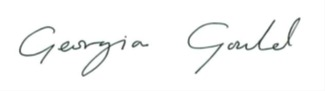 Georgia Gould